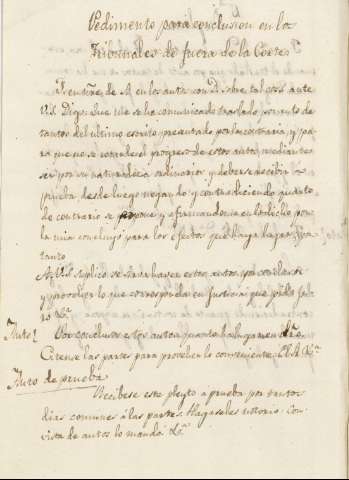 Pedimento para conclusion en los
Tribunales de fuera de la Corte
F. en ñre. de M. en los autos con D. sobre tal cosa ante
V.S. Digo: Que me se ha comunicado traslado por auto de
tantos del ultimo escrito presentado por la contraria, y pa
ra que no se retarde el progreso de estos autos, mediante a
ser por su naturaleza ordinarios, y deberse recibir a
prueba, desde luego negando y contradiciendo quanto
de contrario se expone, y afirmandome en lo dicho por
la mia concluyo para los efectos que haya lugar: Por
tanto
A V.S. suplico se sirva haver estos autos por conclusos
y proveer lo que corresponda en Justicia que pido juro
Auto
Por conclusos los autos quanto ha lugar en dro.
Citense las partes para proveher lo conveniente
Auto de prueba
Recibese este pleyto a prueba por tantos
dias comunes á las partes. Hagaseles notorio. Con
vista de autos lo mandó